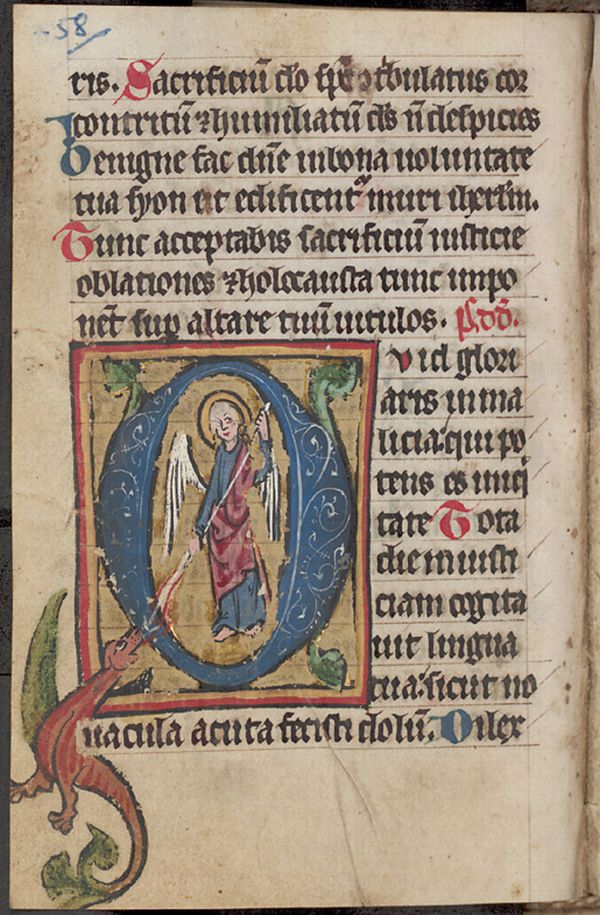 58
ris. Sacrificiū dō spc̄ ɔtbulatus cor
contritū ⁊ humiliatū ds̄ n̄ despicies
Benigne fac dn̄e in bona uoluntate
tua syon ut edificentᷣ muri iherlm̄.
Tunc acceptabis sacrificiū iusticie
oblationes ⁊ holocausta tunc impo
nēt sup altare tuū uitulos. ps. dd̄.
Quid glori
aris in ma
licia: qui po
tens es iniq
tate Tota
die iniusti
ciam cogita
uit lingua
tua: sicut no
uacula acuta fecisti dolū. Dilex